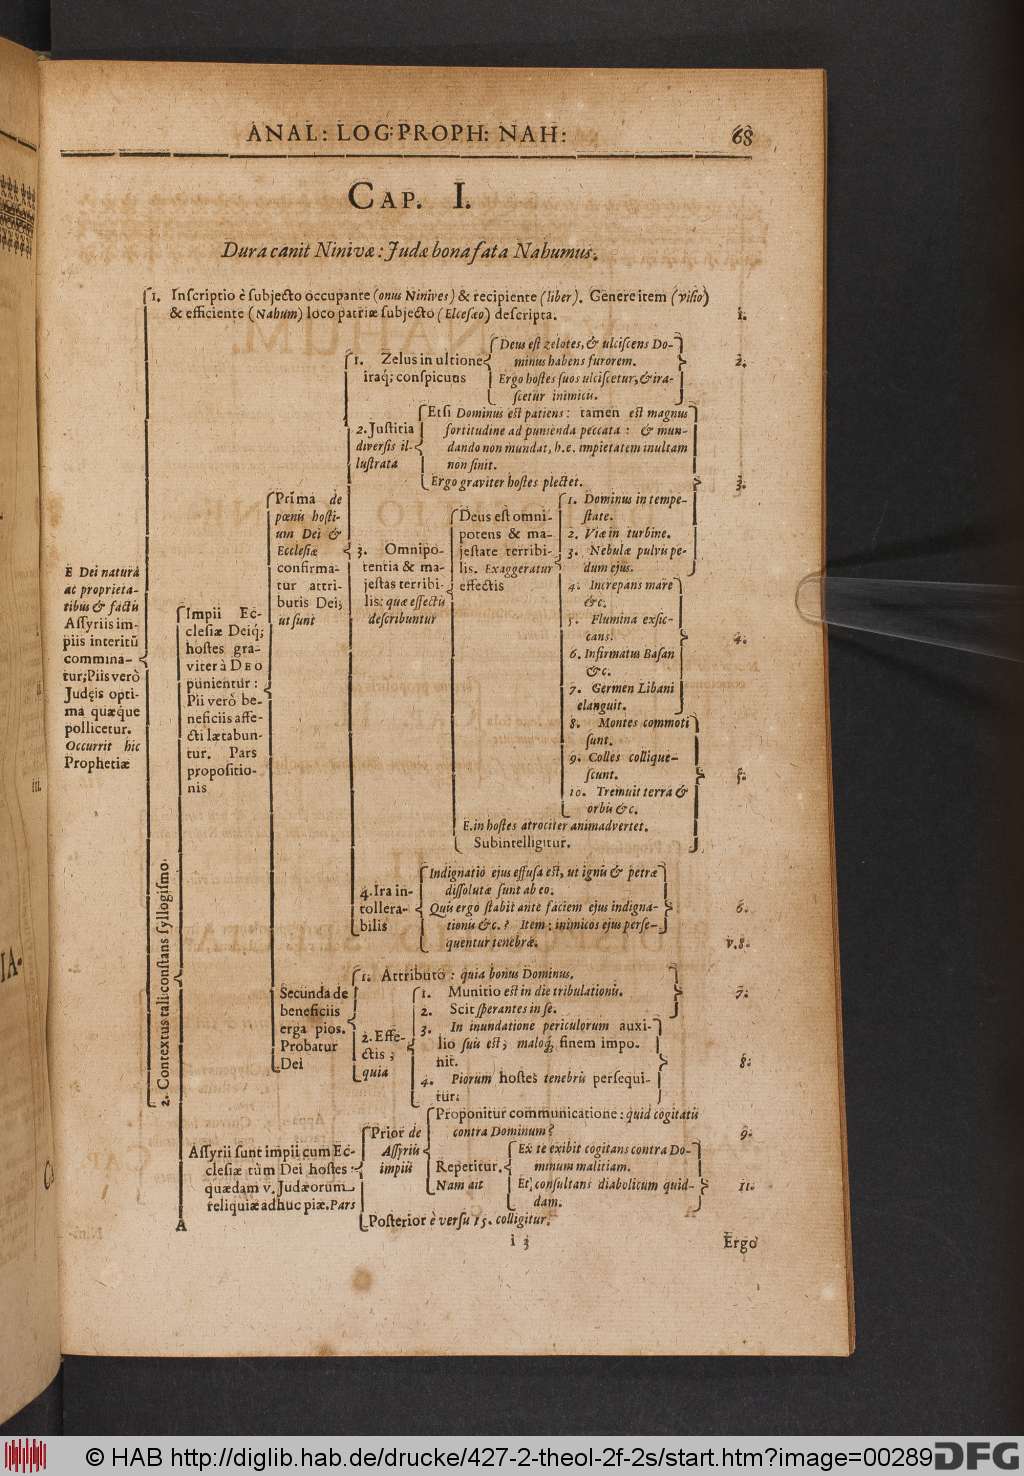 ANAL: LOG: PROPH: NAH: 68
CAP. I.
Dura canit Ninivæ: Judæ bona fata Nahumus.
E Dei naturâ
at proprieta-
tibus & factis
Assyriis im-
piis interitũ
commina-
tur; Piis verò
Judęis opti-
ma quæque
pollicetur.
Occurrit hîc
Prophetiæ
1. Inscriptio è subjecto occupante (onus Ninives) & recipiente (liber). Genere item (visio)
& efficiente (Nahum) loco patriæ subjecto (Elcesæo) descripta. 1.
2. Contextus tali constans syllogismo
Impii Ec-
clesiæ Deiq;
hostes gra-
viter à DEO
punientur:
Pii verò be-
neficiis affe-
cti lætabun-
tur. Pars
propositio-
nis
Prima de
pœnis hosti-
um Dei &
Ecclesiæ
confirma-
tur attri-
butis Dei;
ut sunt
1. Zelus in ultione
iraq; conspicuus
Deus est zelotes, & ulciscens Do-
minus habens furorem.
Ergo hostes suos ulciscetur, & ira-
scetur inimicis.
2.
2. Justitia
diversis il-
lustrata
Etsi Dominus est patiens: tamen est magnus
fortitudine ad punienda peccata: & mun-
dando non mundat, h.e. impietatem inultam
non sinit.
Ergo graviter hostes plectet. 3.
3. Omnipo-
tentia & ma-
jestas terribi-
lis: quæ effectis
describuntur
Deus est omni-
potens & ma-
jestate terribi-
lis. Exaggeratur
effectis
1. Dominus in tempe-
state.
2. Viæ in turbine.
3. Nebulæ pulvis pe-
dum ejus.
4. Increpans mare
&c.
5. Flumina exsic-
cans.
6. Infirmatus Basan
&c.
7. Germen Libani
elanguit.
4.
8. Montes commoti
sunt.
9. Colles collique-
scunt.
10. Tremuit terra &
orbis &c.
5.
E. in hostes atrociter animadvertet.
Subintelligitur.
4. Ira in-
tollera-
bilis
Indignatio ejus effusa est, ut ignis & petræ
dissolutæ sunt ab eo.
Quis ergo stabit ante faciem ejus indigna-
tionis &c.? Item: inimicos ejus perse-
quentur tenebræ.
6.
v. 8.
Secunda de
beneficiis
erga pios.
Probatur
Dei
1. Attributo: quia bonus Dominus.
2. Effe-
ctis;
quia
1. Munitio est in die tribulationis.
2. Scit sperantes in se.
7.
3. In inundatione periculorum auxi-
lio suis est; malisq; finem impo-
nit.
4. Piorum hostes tenebris persequi-
tur.
8.
Assyrii sunt impii cum Ec-
clesiæ tùm Dei hostes:
quædam v. Judæorum
reliquiæ adhuc piæ. Pars
Prior de
Assyriis
impiis
Proponitur communicatione: quid cogitatis
contra Dominum?
9.
Repetitur.
Nam ait
Ex te exibit cogitans contra Do-
minum malitiam.
Et, consultans diabolicum quid-
dam.
11.
Posterior è versu 15. colligitur.
A
i 3
Ergo
© HAB http://diglib.hab.de/drucke/427-2-theol-2f-2s/start.htm?image=00289
DFG